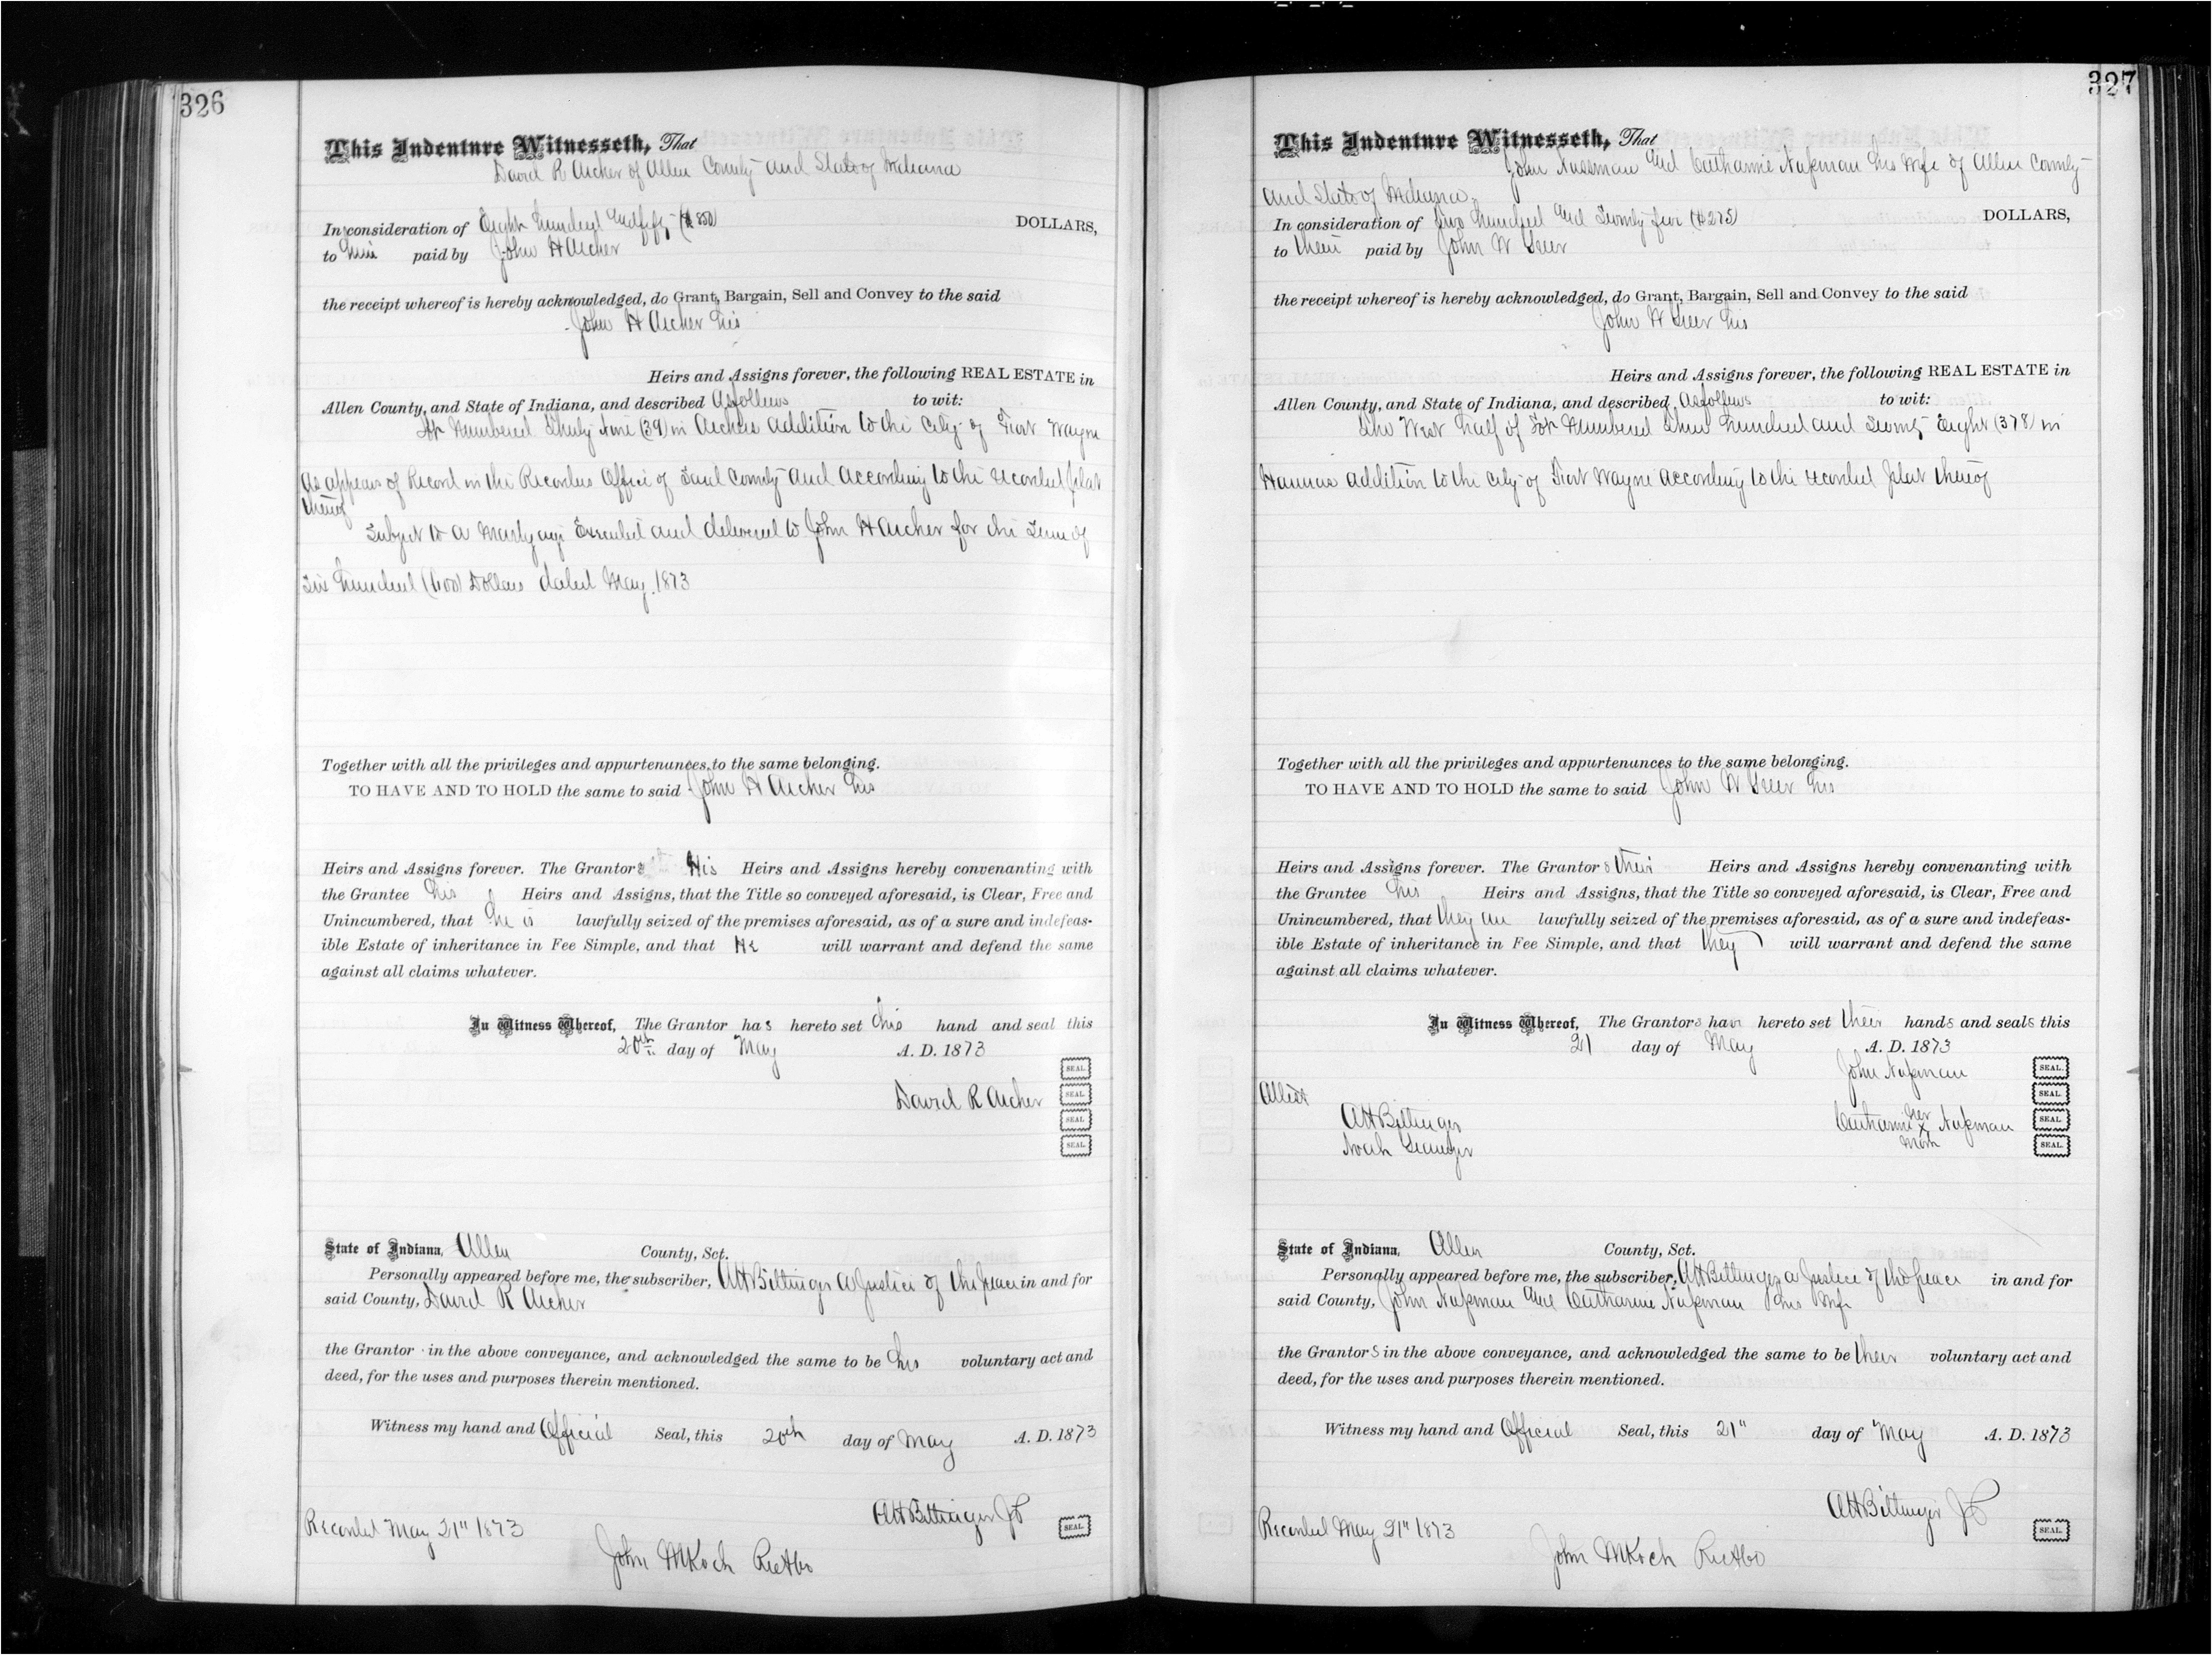 326
This Indenture Witnesseth, That
David R Archer of Allen County and State of Indiana
In consideration of Eight hundred and fifty ($850) DOLLARS,
to him paid by John H Archer
the receipt whereof is hereby acknowledged, do Grant, Bargain, Sell and Convey to the said
John H Archer his
Heirs and Assigns forever, the following REAL ESTATE in
Allen County, and State of Indiana, and described as follows to wit:
Lot Numbered Thirty Nine (39) in Archers Addition to the City of Fort Wayne
as appears of Record in the Recorders Office of Said County and according to the recorded plat
thereof
Subject to a Mortgage Executed and delivered to John H Archer for the Sum of
Six hundred (600) Dollars dated May 1873
Together with all the privileges and appurtenances to the same belonging.
TO HAVE AND TO HOLD the same to said John H Archer his
Heirs and Assigns forever. The Grantor His Heirs and Assigns hereby convenanting with
the Grantee his Heirs and Assigns, that the Title so conveyed aforesaid, is Clear, Free and
Unincumbered, that he is lawfully seized of the premises aforesaid, as of a sure and indefeas-
ible Estate of inheritance in Fee Simple, and that He will warrant and defend the same
against all claims whatever.
In Witness Whereof, The Grantor has hereto set his hand and seal this
20th day of May A. D. 1873
SEAL.
David R Archer SEAL.
SEAL.
SEAL.
State of Indiana, Allen County, Sct.
Personally appeared before me, the subscriber, AH Bittinger a Justice of the peace in and for
said County, David R Archer
the Grantor in the above conveyance, and acknowledged the same to be his voluntary act and
deed, for the uses and purposes therein mentioned.
Witness my hand and Official Seal, this 20th day of May A. D. 1873
AH Bittinger JP SEAL.
Recorded May 21" 1873
John M Koch
327
This Indenture Witnesseth, That
John Nussman and Catharine Nussman his wife of Allen County
and State of Indiana
In consideration of Two hundred and Seventy five ($275) DOLLARS,
to them paid by John W
the receipt whereof is hereby acknowledged, do Grant, Bargain, Sell and Convey to the said
John W his
Heirs and Assigns forever, the following REAL ESTATE in
Allen County, and State of Indiana, and described as follows to wit:
The West half of Lot Numbered Three hundred and Seventy Eight (378) in
Hannas Addition to the City of Fort Wayne according to the recorded plat thereof
Together with all the privileges and appurtenances to the same belonging.
TO HAVE AND TO HOLD the same to said John W his
Heirs and Assigns forever. The Grantors their Heirs and Assigns hereby convenanting with
the Grantee his Heirs and Assigns, that the Title so conveyed aforesaid, is Clear, Free and
Unincumbered, that they are lawfully seized of the premises aforesaid, as of a sure and indefeas-
ible Estate of inheritance in Fee Simple, and that they will warrant and defend the same
against all claims whatever.
In Witness Whereof, The Grantors have hereto set their hands and seals this
21 day of May A. D. 1873
John Nussman SEAL.
Attest SEAL.
AH Bittinger
her
Catharine x Nussman SEAL.
mark
Noah SEAL.
State of Indiana, Allen County, Sct.
Personally appeared before me, the subscriber, AH Bittinger a Justice of the peace in and for
said County, John Nussman and Catharine Nussman his wife
the Grantors in the above conveyance, and acknowledged the same to be their voluntary act and
deed, for the uses and purposes therein mentioned.
Witness my hand and Official Seal, this 21" day of May A. D. 1873
AH Bittinger JP SEAL.
Recorded May 21" 1873
John M Koch